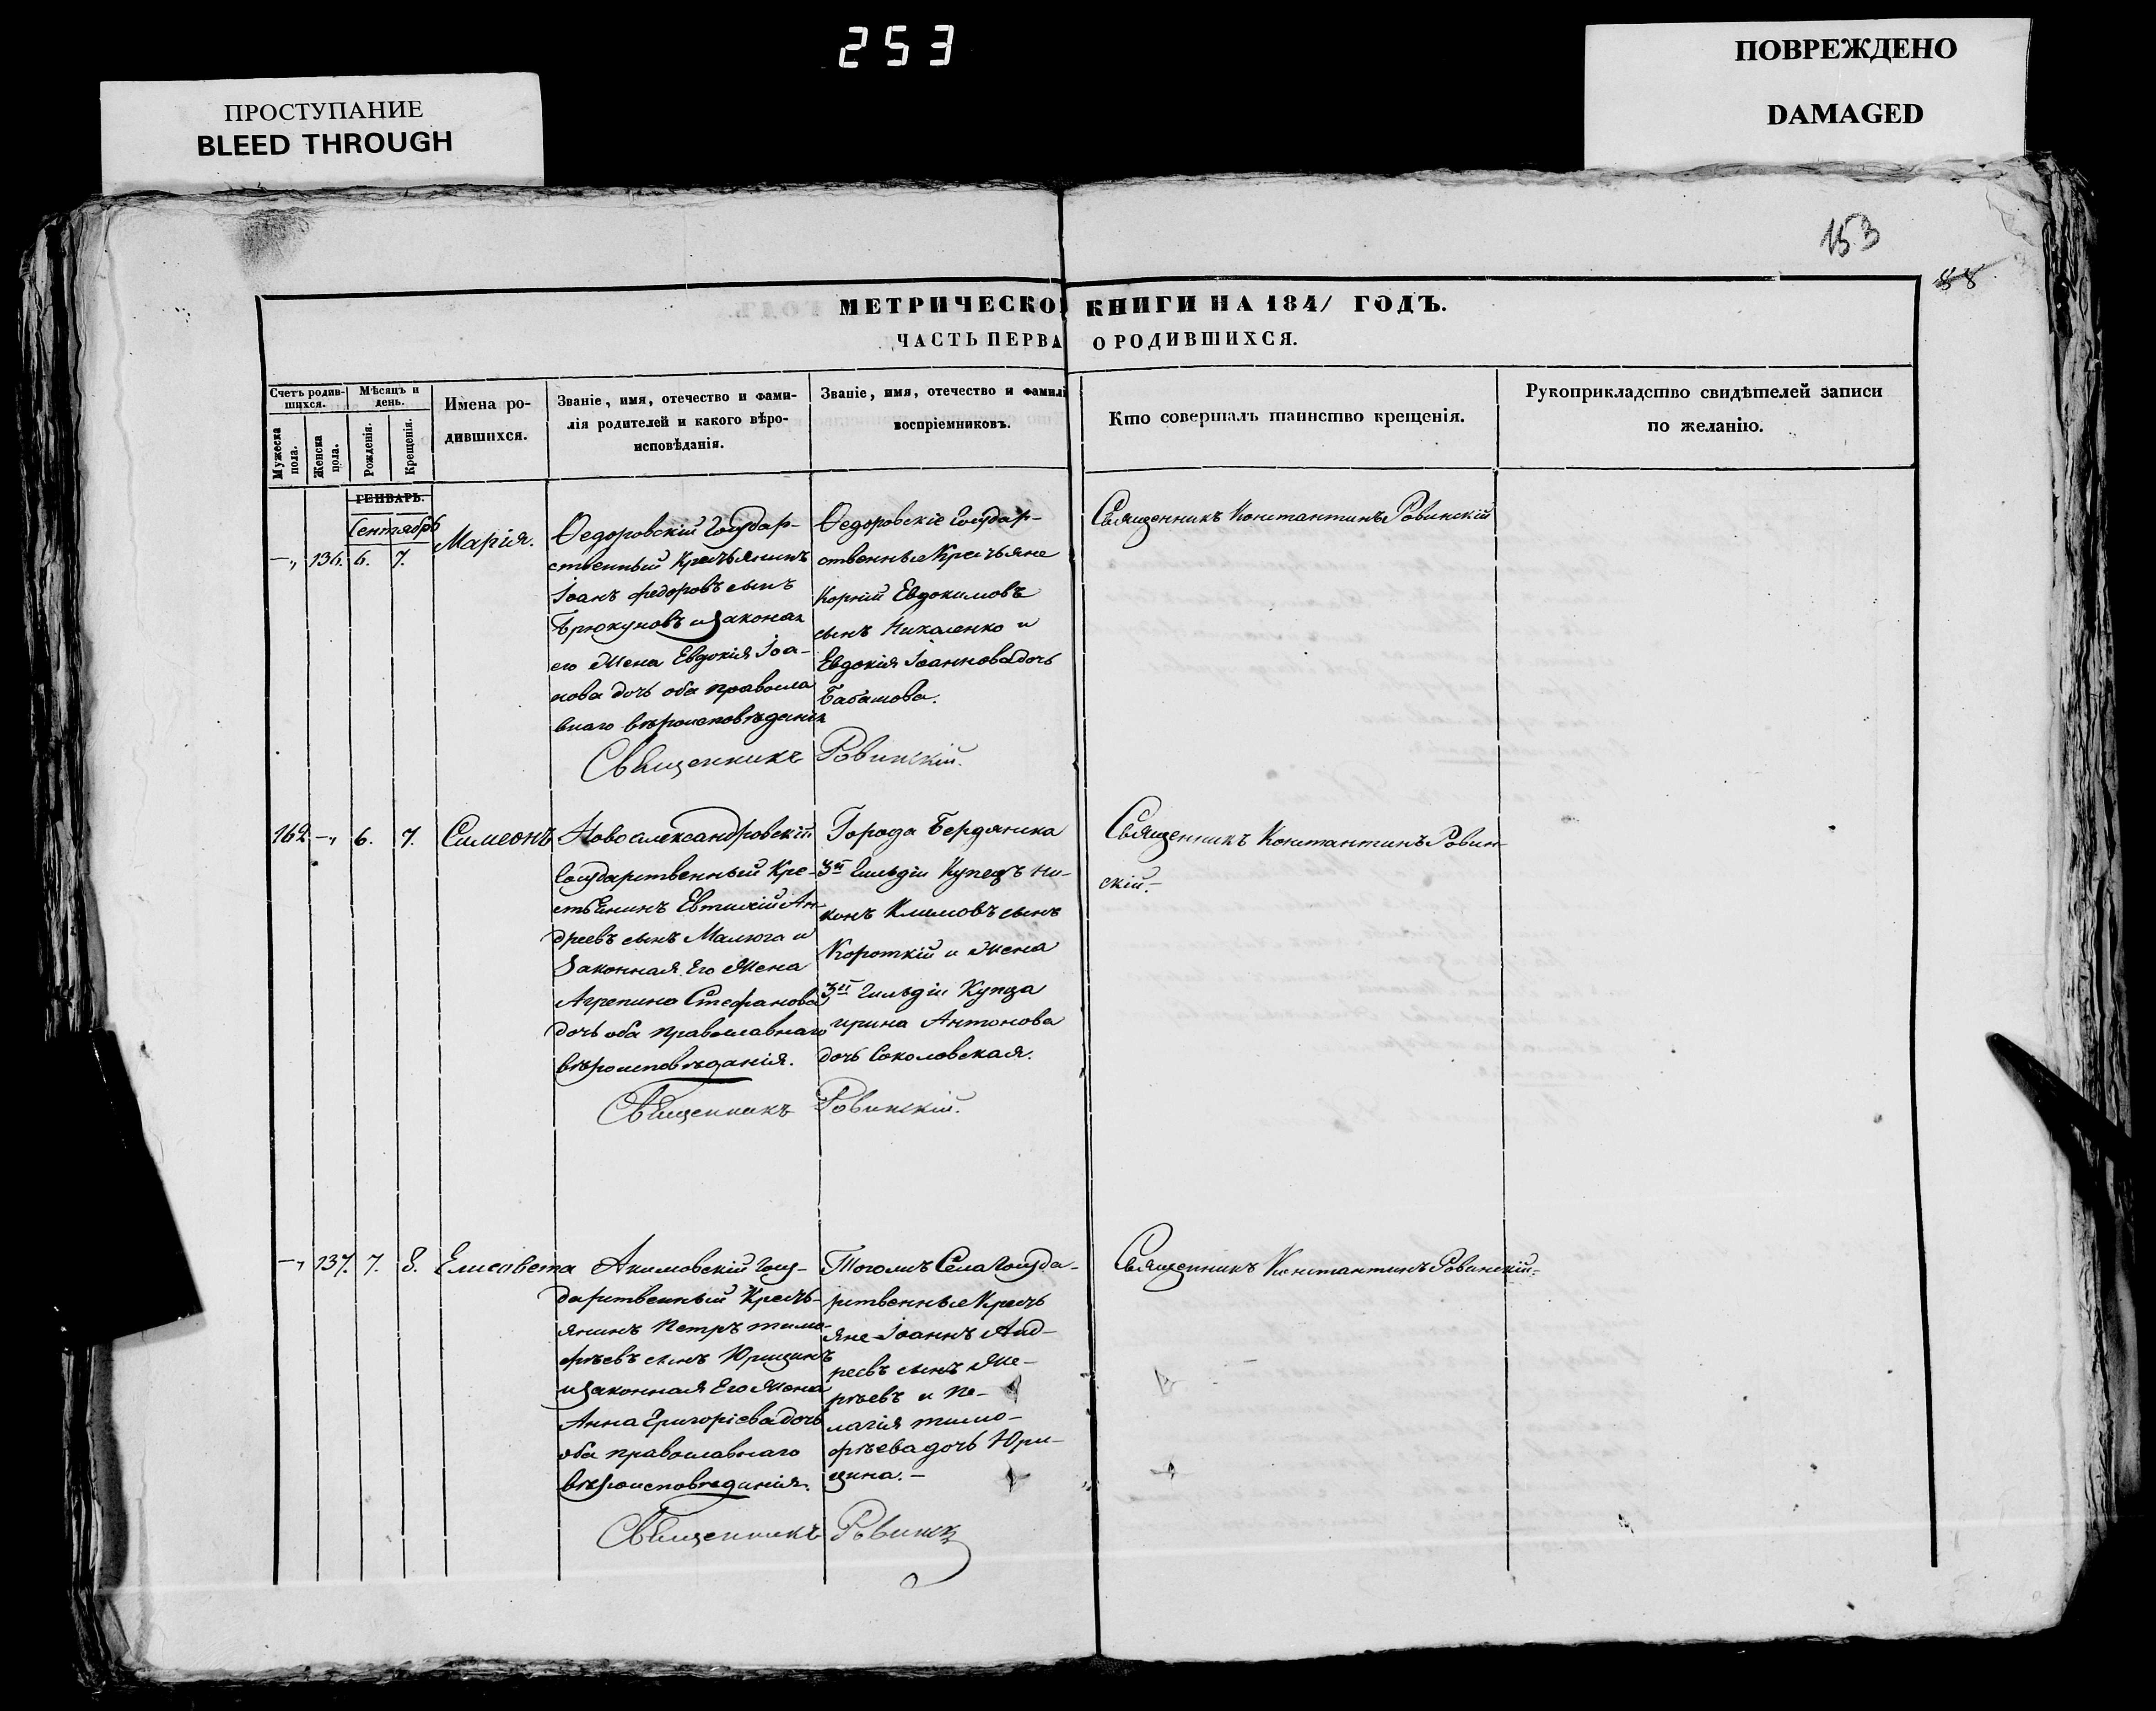 253
ПРОСТУПАНИЕ
BLEED THROUGH
ПОВРЕЖДЕНО
DAMAGED
153
88
МЕТРИЧЕСКО КНИГИ НА 1841 ГОДЪ.
ЧАСТЬ ПЕРВА О РОДИВШИХСЯ.
Счетъ родив-
шихся.
Мужеска
пола.
Женска
пола.
Мѣсяцъ и
день.
Рожденія.
Крещенія.
Имена ро-
дившихся.
Званіе, имя, отечество и фами-
лія родителей и какого вѣро-
исповѣданія.
Званіе, имя, отечество и фамилі
воспріемниковъ.
Кто совершалъ таинство крещенія.
Рукоприкладство свидѣтелей записи
по желанію.
ГЕНВАРЬ.
Сентябрь
–„ 136. 6. 7.
Марія.
Ѳедоровскій Государ-
ственный Крестьянинъ
Іоанъ федоровъ сынъ
Брюкуновъ и законая
его Жена Евдокія Іоа-
нова дочь оба православ
внаго вѣроисповѣданія
Ѳедоровскіе Государ-
ственные Крестьяне
Корній Евдокимовъ
сынъ Николенко и
Евдокія Іоаннова дочь
Бабашова.
Священникъ Константинъ Ровинскій
Священникъ Ровинскій.
162 –„ 6. 7.
Симеонъ
Новоалександровскій
Государственный Кре-
стьянинъ Евтихій Ан-
дреевъ сынъ Малюга и
Законная Его Жена
Агрепина Стефанова
дочь оба православнаго
вѣроисповѣданія.
Города Бердянска
3й Гильдіи Купецъ Ни-
конъ Климовъ сынъ
Короткій и Жена
3й Гильдіи Купца
ирина Антонова
дочь Соколовская.
Священникъ Константинъ Ровин-
скій.–
Священникъ Ровинскій.
–„ 137. 7. 8.
Елисавета
Акимовскій Госу-
дарственный Кресть-
янинъ Петръ тимо-
фѣевъ сынъ Юрицинъ
и законная Его Жена
Анна Григоріева дочь
оба православнаго
вѣроисповѣданія.
Тогожъ Села Госуда-
рственные Кресть
яне Іоаннъ Анд-
реевъ сынъ Же-
рѣевъ и Пе-
лагія тимо-
фѣева дочь Юри-
цина.–
Священникъ Константинъ Ровинскій.
Священникъ Ровинск